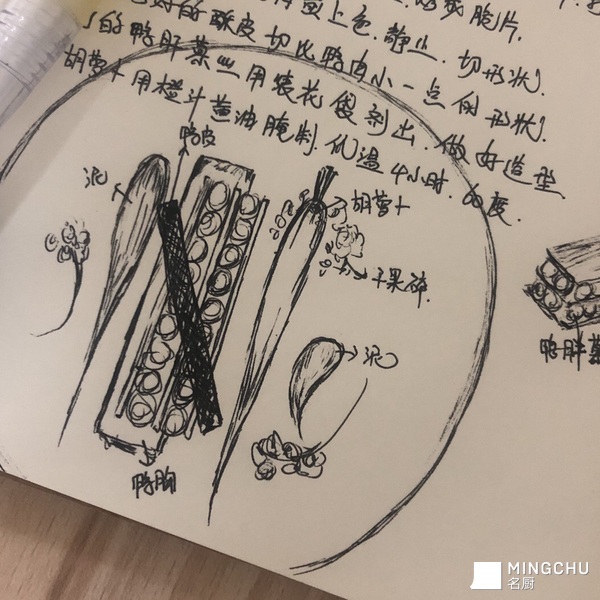 的酥皮切比鸭肉小一点的形状.
的鸭肝慕丝用裱花袋挤出.做好造型.
胡萝卜用橙汁黄油腌制.低温4小时.60度.
鸭皮
泥
胡萝卜
干果碎.
泥
鸭胸
鸭肝慕
MINGCHU
名厨